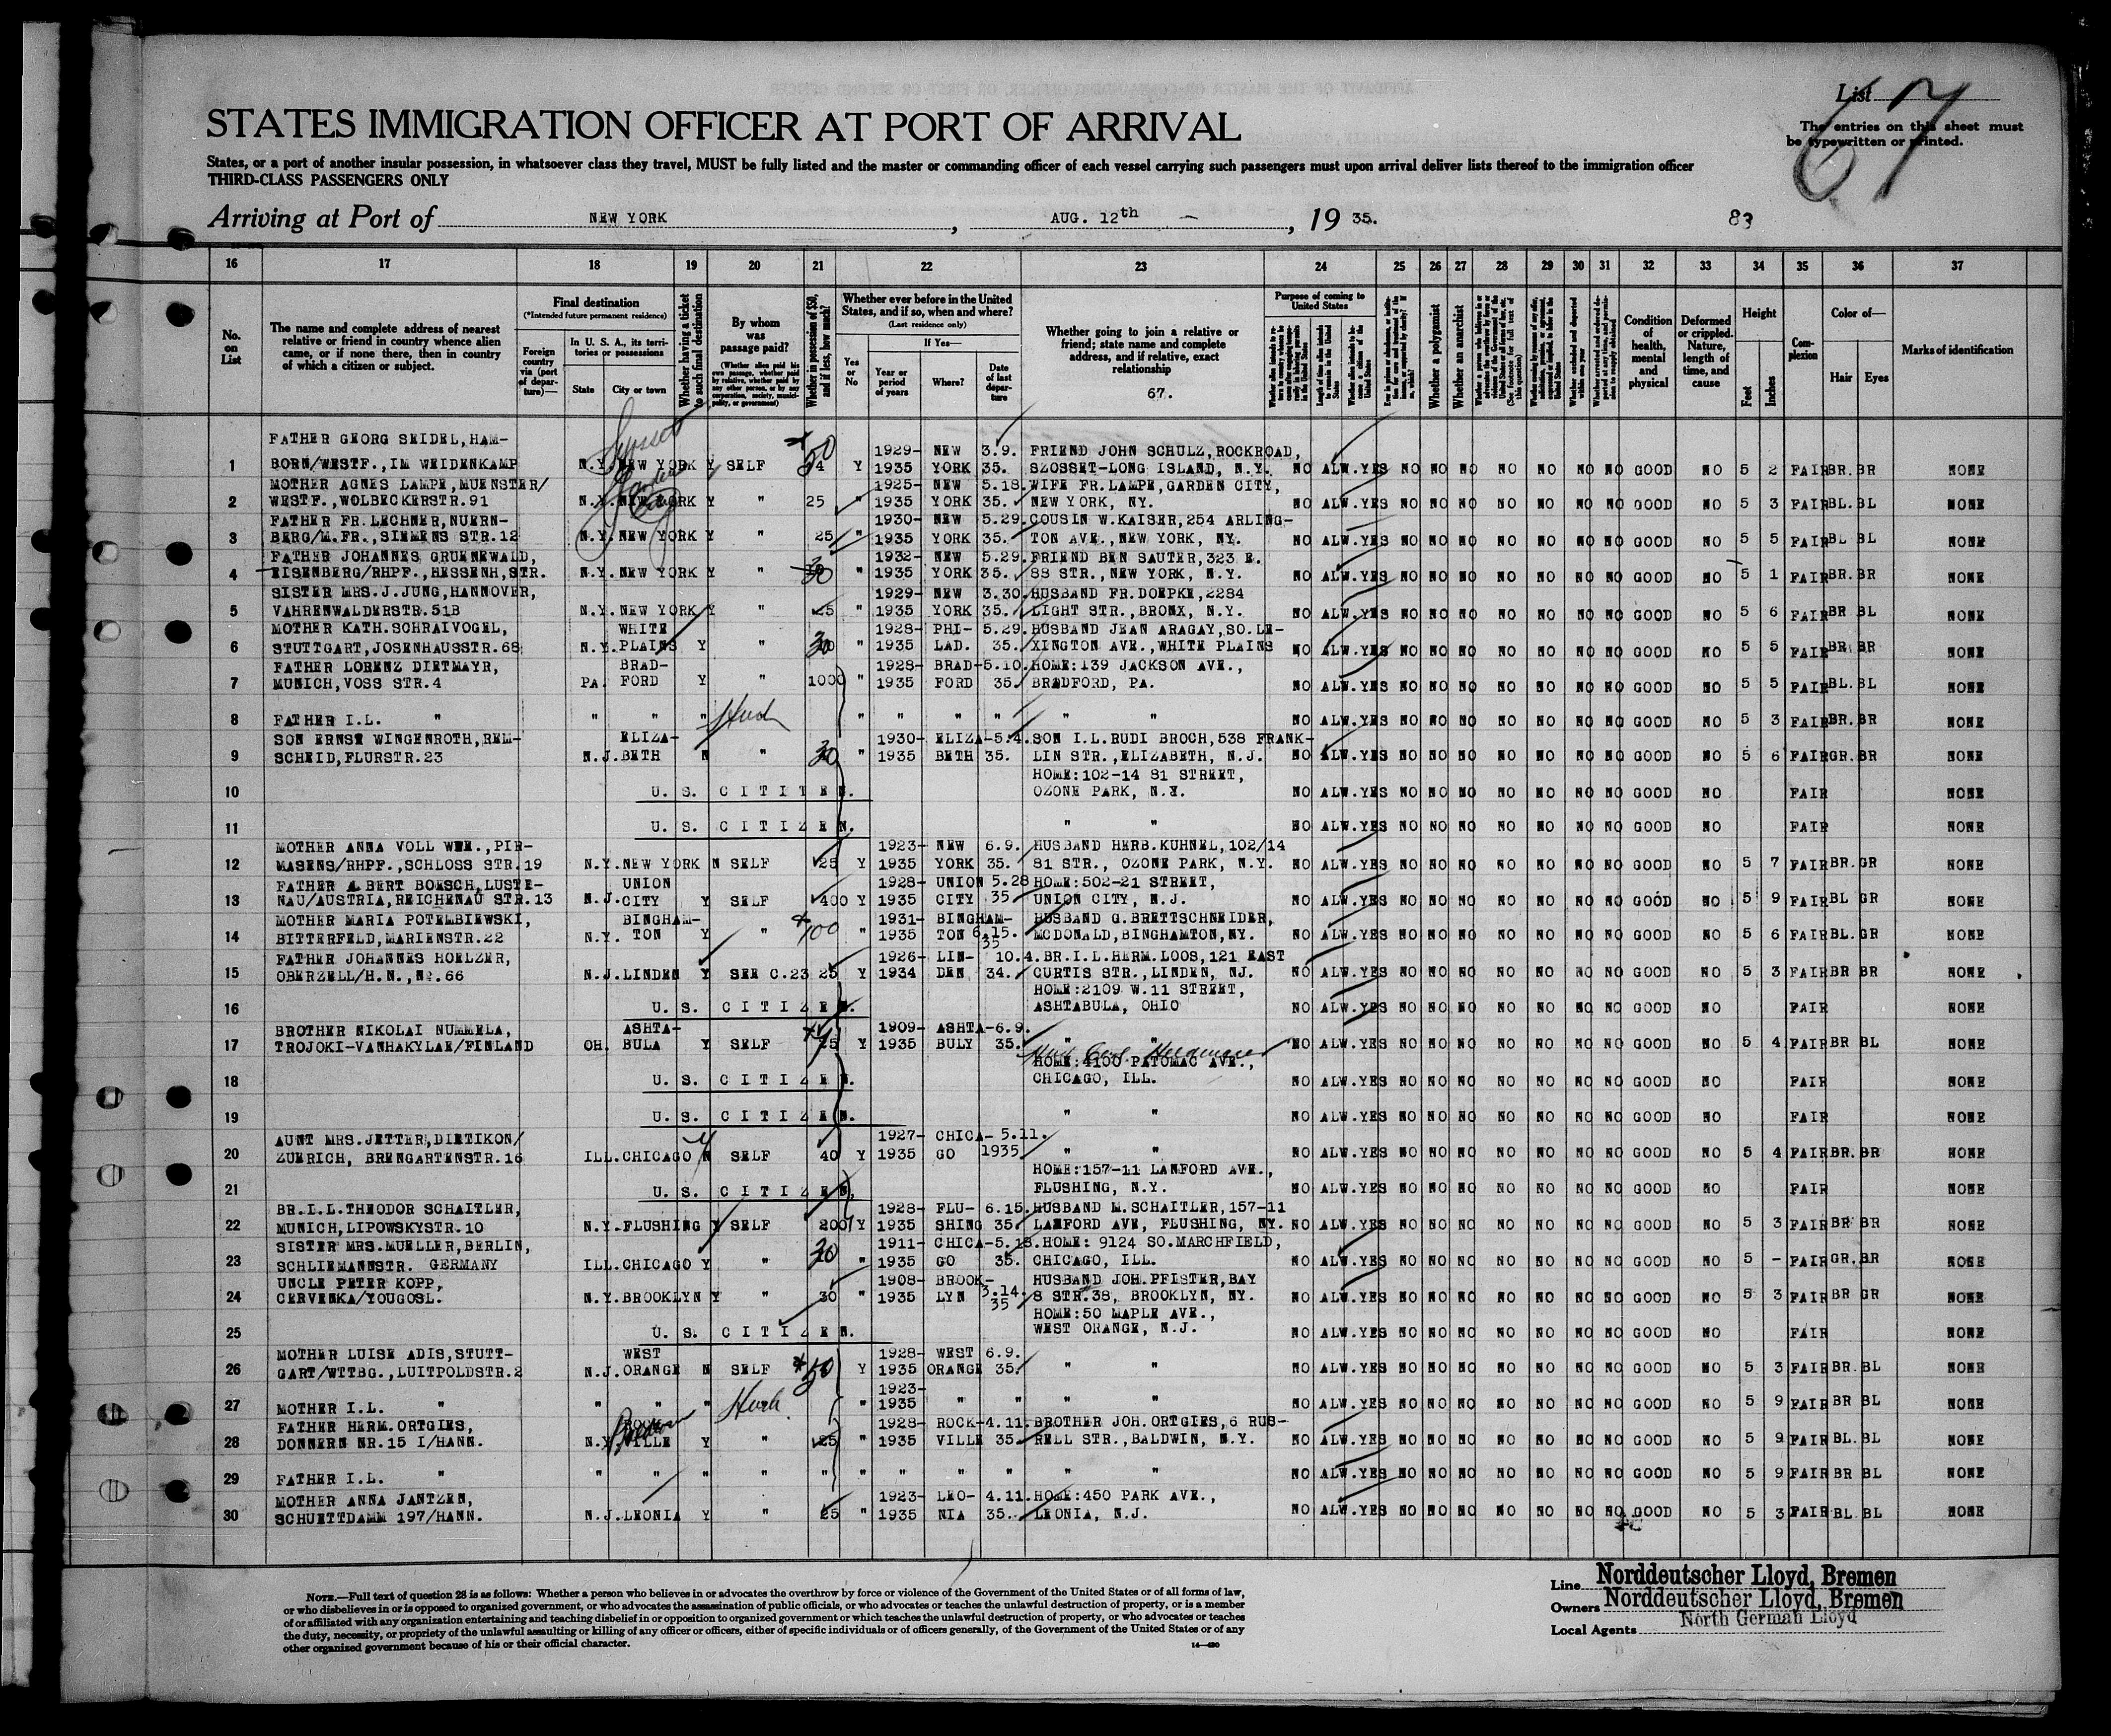 List 67
STATES IMMIGRATION OFFICER AT PORT OF ARRIVAL
The entries on this sheet must
be typewritten or printed.
States, or a port of another insular possession, in whatsoever class they travel, MUST be fully listed and the master or commanding officer of each vessel carrying such passengers must upon arrival deliver lists thereof to the immigration officer
THIRD-CLASS PASSENGERS ONLY
Arriving at Port of NEW YORK, AUG. 12th, 19 35. 83
16 17 18 19 20 21 22 23 24 25 26 27 28 29 30 31 32 33 34 35 36 37
No. on List
The name and complete address of nearest relative or friend in country whence alien came, or if none there, then in country of which a citizen or subject.
Final destination
(*Intended future permanent residence)
Foreign country via (port of departure)—
In U. S. A., its territories or possessions
State City or town
Whether having a ticket to such final destination
By whom was passage paid?
(Whether alien paid his own passage, whether paid by relative, whether paid by any other person, or by any corporation, society, municipality, or government)
Whether in possession of $50, and if less, how much?
Whether ever before in the United States, and if so, when and where?
(Last residence only)
Yes or No
If Yes—
Year or period of years
Where?
Date of last departure
Whether going to join a relative or friend; state name and complete address, and if relative, exact relationship
67.
Purpose of coming to United States
Whether a polygamist
Whether an anarchist
Condition of health, mental and physical
Deformed or crippled. Nature, length of time, and cause
Height
Feet Inches
Complexion
Color of—
Hair Eyes
Marks of identification
FATHER GEORG SEIDEL, HAM- 1929- NEW 3.9. FRIEND JOHN SCHULZ, ROCKROAD,
1 BORN/WESTF., IM WEIDENKAMP N.Y. NEW YORK Y SELF 50 Y 1935 YORK 35. SZOSSET-LONG ISLAND, N.Y. NO ALW. YES NO NO NO NO NO NO NO GOOD NO 5 2 FAIR BR. BR NONE
MOTHER AGNES LAMPE, MUENSTER/ 1925- NEW 5.18. WIFE FR. LAMPE, GARDEN CITY,
2 WESTF., WOLBECKERSTR. 91 N.Y. NEW YORK Y " 25 " 1935 YORK 35. NEW YORK, NY. NO ALW. YES NO NO NO NO NO NO NO GOOD NO 5 3 FAIR BL. BL NONE
FATHER FR. LECHNER, NUERN- 1930- NEW 5.29. COUSIN W. KAISER, 254 ARLING-
3 BERG/M. FR., SIEMENS STR. 12 N.Y. NEW YORK Y " 25 " 1935 YORK 35. TON AVE., NEW YORK, NY. NO ALW. YES NO NO NO NO NO NO NO GOOD NO 5 5 FAIR BL BL NONE
FATHER JOHANNES GRUENEWALD, 1932- NEW 5.29. FRIEND BEN SAUTER, 323 E.
4 EISENBERG/RHPF., HESSENH, STR. N.Y. NEW YORK Y " 30 " 1935 YORK 35. 88 STR., NEW YORK, N.Y. NO ALW. YES NO NO NO NO NO NO NO GOOD NO 5 1 FAIR BR. BR NONE
SISTER MRS. J. JUNG, HANNOVER, 1929- NEW 3.30. HUSBAND FR. DOEPKE, 2284
5 VAHRENWALDERSTR. 51B N.Y. NEW YORK Y " 25 " 1935 YORK 35. LIGHT STR., BRONX, N.Y. NO ALW. YES NO NO NO NO NO NO NO GOOD NO 5 6 FAIR BR BL NONE
MOTHER KATH. SCHRAIVOGEL, WHITE 1928- PHI- 5.29. HUSBAND JEAN ARAGAY, SO. LE-
6 STUTTGART, JOSENHAUSSTR. 68 N.Y. PLAINS Y " 30 " 1935 LAD. 35. XINGTON AVE., WHITE PLAINS NO ALW. YES NO NO NO NO NO NO NO GOOD NO 5 5 FAIR BR BR NONE
FATHER LORENZ DIETMAYR, BRAD- 1928- BRAD- 5.10. HOME: 139 JACKSON AVE.,
7 MUNICH, VOSS STR. 4 PA. FORD Y " 1000 " 1935 FORD 35. BRADFORD, PA. NO ALW. YES NO NO NO NO NO NO NO GOOD NO 5 5 FAIR BL. BL NONE
8 FATHER I.L. " " " " Husb " " " " " " NO ALW. YES NO NO NO NO NO NO NO GOOD NO 5 3 FAIR BR. BR NONE
SON ERNST WINGENROTH, REM- ELIZA- 1930- ELIZA- 5.4. SON I.L. RUDI BROCH, 538 FRANK-
9 SCHEID, FLURSTR. 23 N.J. BETH N " 30 " 1935 BETH 35. LIN STR., ELIZABETH, N.J. NO ALW. YES NO NO NO NO NO NO NO GOOD NO 5 6 FAIR GR. BR NONE
HOME: 102-14 81 STREET,
10 U. S. CITITEN. OZONE PARK, N.Y. NO ALW. YES NO NO NO NO NO NO NO GOOD NO FAIR NONE
11 U. S. CITIZEN. " " NO ALW. YES NO NO NO NO NO NO NO GOOD NO FAIR NONE
MOTHER ANNA VOLL WWE., PIR- 1923- NEW 6.9. HUSBAND HERB. KUHNEL, 102/14
12 MASENS/RHPF., SCHLOSS STR. 19 N.Y. NEW YORK N SELF 25 Y 1935 YORK 35. 81 STR., OZONE PARK, N.Y. NO ALW. YES NO NO NO NO NO NO NO GOOD NO 5 7 FAIR BR. GR NONE
FATHER ALBERT BOESCH, LUSTE- UNION 1928- UNION 5.28 HOME: 502-21 STREET,
13 NAU/AUSTRIA, REICHENAU STR. 13 N.J. CITY Y SELF 400 Y 1935 CITY 35 UNION CITY, N.J. NO ALW. YES NO NO NO NO NO NO NO GOOD NO 5 9 FAIR BL GR NONE
MOTHER MARIA POTEMBIEWSKI, BINGHAM- 1931- BINGHAM- HUSBAND G. BRETTSCHNEIDER,
14 BITTERFELD, MARIENSTR. 22 N.Y. TON Y " 100 " 1935 TON 6.15. 35 MCDONALD, BINGHAMTON, NY. NO ALW. YES NO NO NO NO NO NO NO GOOD NO 5 6 FAIR BL. GR NONE
FATHER JOHANNES HOELZER, 1926- LIN- 10.4. BR. I.L. HERM. LOOS, 121 EAST
15 OBERZELL/H.N., Nr. 66 N.J. LINDEN Y SEE C. 23 25 Y 1934 DEN 34. CURTIS STR., LINDEN, NJ. NO ALW. YES NO NO NO NO NO NO NO GOOD NO 5 3 FAIR BR BR NONE
HOME: 2109 W. 11 STREET,
16 U. S. CITIZEN. ASHTABULA, OHIO NO ALW. YES NO NO NO NO NO NO NO GOOD NO FAIR NONE
BROTHER NIKOLAI NUMMELA, ASHTA- 1909- ASHTA- 6.9.
17 TROJOKI-VANHAKYLAE/FINLAND OH. BULA Y SELF Y 1935 BULY 35. " " NO ALW. YES NO NO NO NO NO NO NO GOOD NO 5 4 FAIR BR BL NONE
HOME: 4100 PATOMAC AVE.,
18 U. S. CITIZEN. CHICAGO, ILL. NO ALW. YES NO NO NO NO NO NO NO GOOD NO FAIR NONE
19 U. S. CITIZEN. " " NO ALW. YES NO NO NO NO NO NO NO GOOD NO FAIR NONE
AUNT MRS. JETTER, DIETIKON/ 1927- CHICA- 5.11.
20 ZUERICH, BRENGARTENSTR. 16 ILL. CHICAGO N SELF 40 Y 1935 GO 1935 " " NO ALW. YES NO NO NO NO NO NO NO GOOD NO 5 4 FAIR BR. BR NONE
HOME: 157-11 LAWFORD AVE.,
21 U. S. CITIZEN. FLUSHING, N.Y. NO ALW. YES NO NO NO NO NO NO NO GOOD NO FAIR NONE
BR. I.L. THEODOR SCHAITLER, 1928- FLU- 6.15. HUSBAND M. SCHAITLER, 157-11
22 MUNICH, LIPOWSKYSTR. 10 N.Y. FLUSHING Y SELF 200 Y 1935 SHING 35. LAWFORD AVE, FLUSHING, NY. NO ALW. YES NO NO NO NO NO NO NO GOOD NO 5 3 FAIR BR BR NONE
SISTER MRS. MUELLER, BERLIN, 1911- CHICA- 5.18. HOME: 9124 SO. MARCHFIELD,
23 SCHLIEMANNSTR. GERMANY ILL. CHICAGO Y " 30 " 1935 GO 35. CHICAGO, ILL. NO ALW. YES NO NO NO NO NO NO NO GOOD NO 5 - FAIR GR. BR NONE
UNCLE PETER KOPP, 1908- BROOK- HUSBAND JOH. PFISTER, BAY
24 CERVENKA/YOUGOSL. N.Y. BROOKLYN Y " 30 " 1935 LYN 3.14. 35 8 STR. 38, BROOKLYN, NY. NO ALW. YES NO NO NO NO NO NO NO GOOD NO 5 3 FAIR BR GR NONE
HOME: 50 MAPLE AVE.,
25 U. S. CITIZEN. WEST ORANGE, N.J. NO ALW. YES NO NO NO NO NO NO NO GOOD NO FAIR NONE
MOTHER LUISE ADIS, STUTT- WEST 1928- WEST 6.9.
26 GART/WTTBG., LUITPOLDSTR. 2 N.J. ORANGE N SELF 50 Y 1935 ORANGE 35. " " NO ALW. YES NO NO NO NO NO NO NO GOOD NO 5 3 FAIR BR. BL NONE
1923-
27 MOTHER I.L. " " " " Husb. " 1935 " " " " NO ALW. YES NO NO NO NO NO NO NO GOOD NO 5 9 FAIR BR BL NONE
FATHER HERM. ORTGIES, Baldwin 1928- ROCK- 4.11. BROTHER JOH. ORTGIES, 6 RUS-
28 DONNERN NR. 15 I/HANN. N.Y. VILLE Y " 25 " 1935 VILLE 35. RELL STR., BALDWIN, N.Y. NO ALW. YES NO NO NO NO NO NO NO GOOD NO 5 9 FAIR BL. BL NONE
29 FATHER I.L. " " " " " " " " " " " " NO ALW. YES NO NO NO NO NO NO NO GOOD NO 5 9 FAIR BR BL NONE
MOTHER ANNA JANTZEN, 1923- LEO- 4.11. HOME: 450 PARK AVE.,
30 SCHUETTDAMM 197/HANN. N.J. LEONIA Y " 25 " 1935 NIA 35. LEONIA, N.J. NO ALW. YES NO NO NO NO NO NO NO GOOD NO 5 3 FAIR BL BL NONE
NOTE.—Full text of question 28 is as follows: Whether a person who believes in or advocates the overthrow by force or violence of the Government of the United States or of all forms of law,
or who disbelieves in or is opposed to organized government, or who advocates the assassination of public officials, or who advocates or teaches the unlawful destruction of property, or is a member
of or affiliated with any organization entertaining and teaching disbelief in or opposition to organized government or which teaches the unlawful destruction of property, or who advocates or teaches
the duty, necessity, or propriety of the unlawful assaulting or killing of any officer or officers, either of specific individuals or of officers generally, of the Government of the United States or of any
other organized government because of his or their official character.
14—430
Line Norddeutscher Lloyd, Bremen
Owners Norddeutscher Lloyd, Bremen
Local Agents North German Lloyd